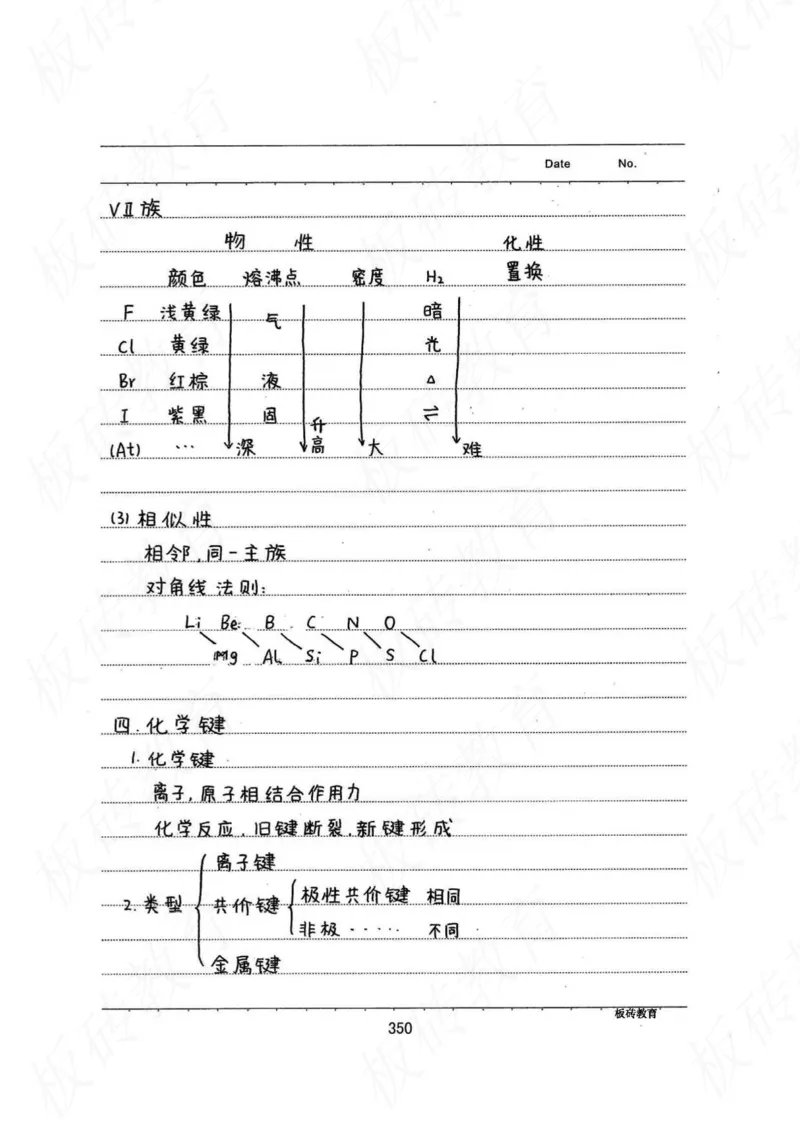 Date No.
VⅡ族
物 性 化性
颜色 熔沸点 密度 H₂ 置换
F 浅黄绿 气 暗
Cl 黄绿 光
Br 红棕 液 △
I 紫黑 固 ⇌
(At) … 深 升高 大 难
(3) 相似性
相邻,同一主族
对角线法则:
Li Be B C N O
Mg Al Si P S Cl
四.化学键
1.化学键
离子,原子相结合作用力
化学反应.旧键断裂.新键形成
离子键
2.类型 共价键 极性共价键 相同
非极····· 不同
金属键
板砖教育
350